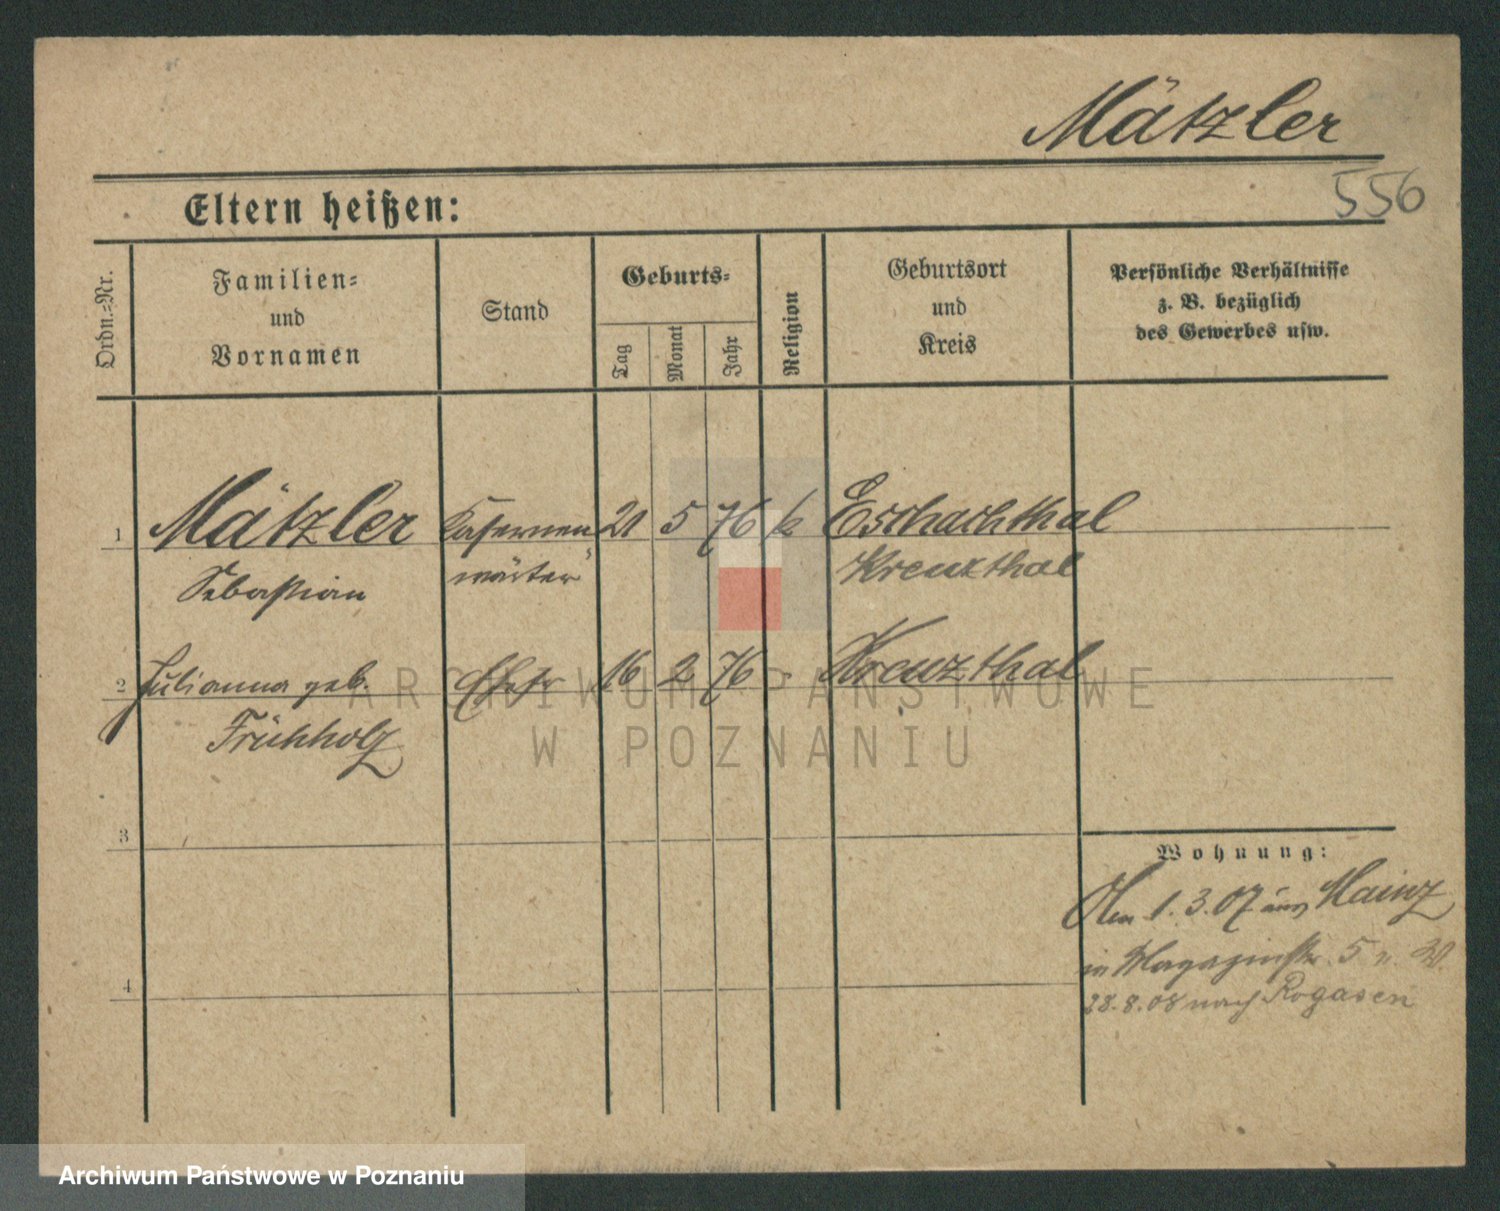 Mätzler
556
Eltern heißen:
Ordn.=Nr.
Familien=
und
Vornamen
Stand
Geburts=
Tag
Monat
Jahr
Religion
Geburtsort
und
Kreis
Persönliche Verhältnisse
z. B. bezüglich
des Gewerbes usw.
1 Mätzler Kasernen 21 5 76 k Eschachthal
Sebastian wärter Kreuzthal
2 Julianna geb. Ehefr 16 2 76 Kreuzthal
Frühholz
3
Wohnung:
1. 3. 07 aus Mainz
in Magazinstr. 5
4
28.8.08 nach Rogasen
ARCHIWUM PAŃSTWOWE
W POZNANIU
Archiwum Państwowe w Poznaniu